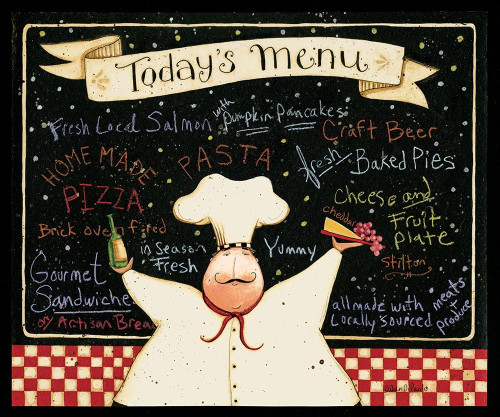 Today's Menu
Fresh Local Salmon
with
Pumpkin Pancakes
Craft Beer
HOME MADE
PASTA
fresh
Baked Pies
PIZZA
Brick oven fired
Cheese and
Fruit
plate
cheddar
in Season
Fresh
Yummy
Stilton
Gourmet
Sandwiche
on Artisan Brea
all made with
Locally sourced
meats
produce